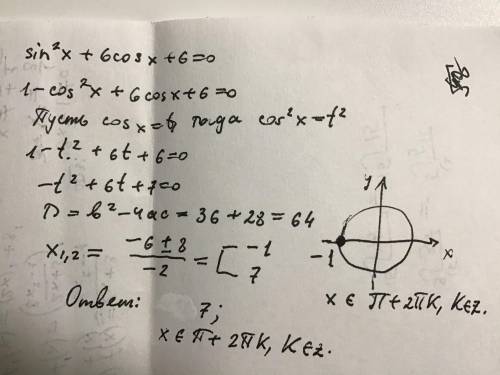 sin²x + 6cosx + 6 = 0
1 - cos²x + 6cosx + 6 = 0
Пусть cos x = t, тогда cos²x = t²
1 - t² + 6t + 6 = 0
-t² + 6t + 7 = 0
D = b² - 4ac = 36 + 28 = 64
x1,2 = (-6 ± 8)/(-2) = [ -1
7
y
x
-1
x ∈ П + 2ПK, K∈Z.
Ответ: 7;
x ∈ П + 2ПK, K∈Z.